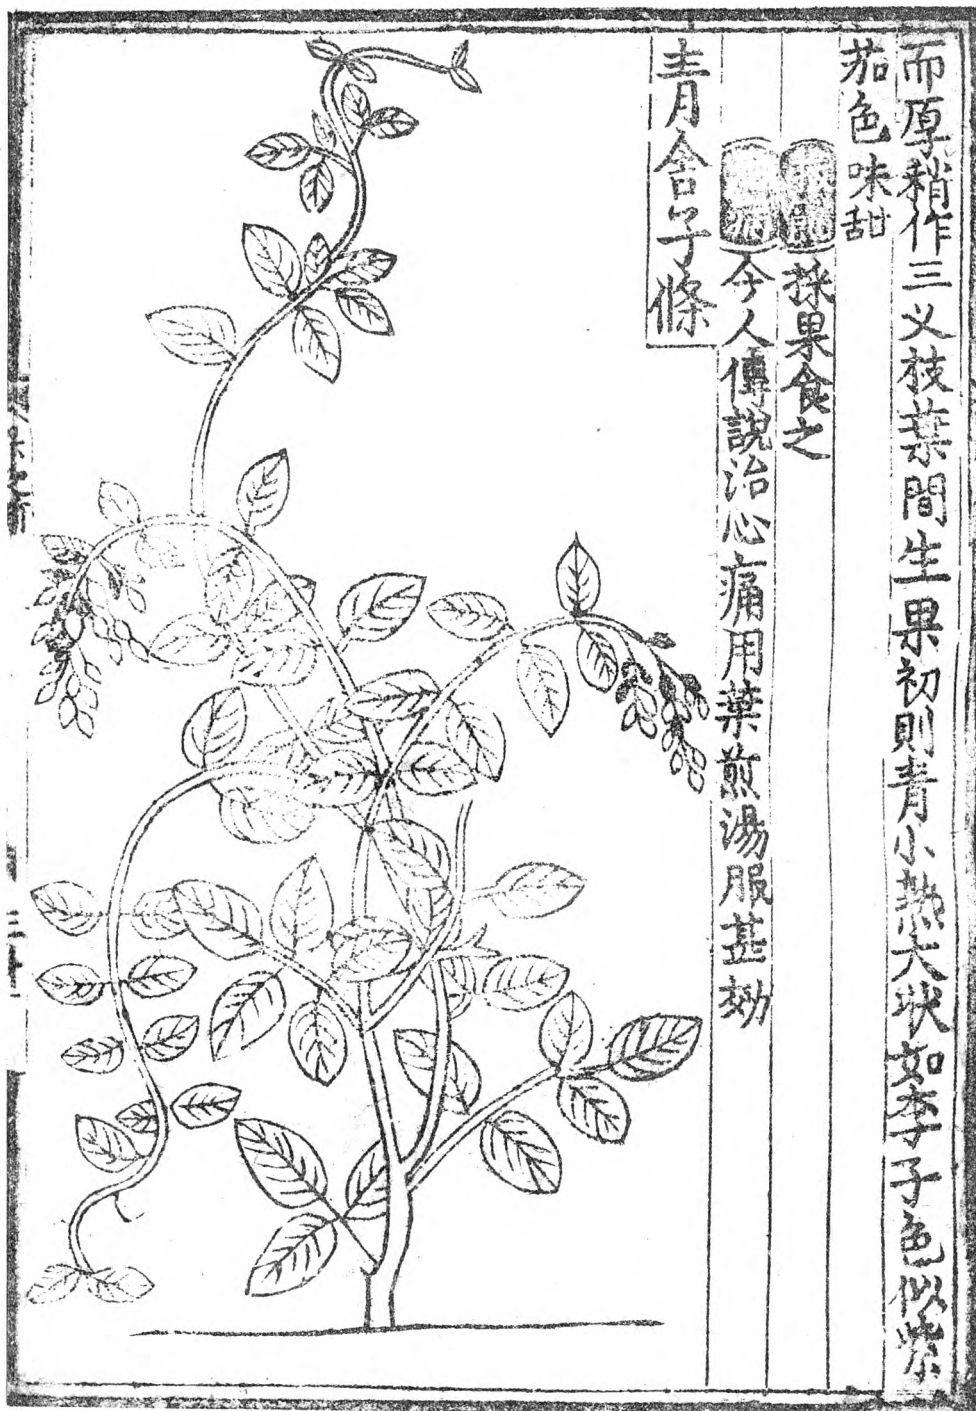 而厚稍作三叉枝葉間生果初則青小熟大狀如李子色似紫
茄色味甜
救飢採果食之
治病今人傳說治心痛用葉煎湯服甚効
青舍子條